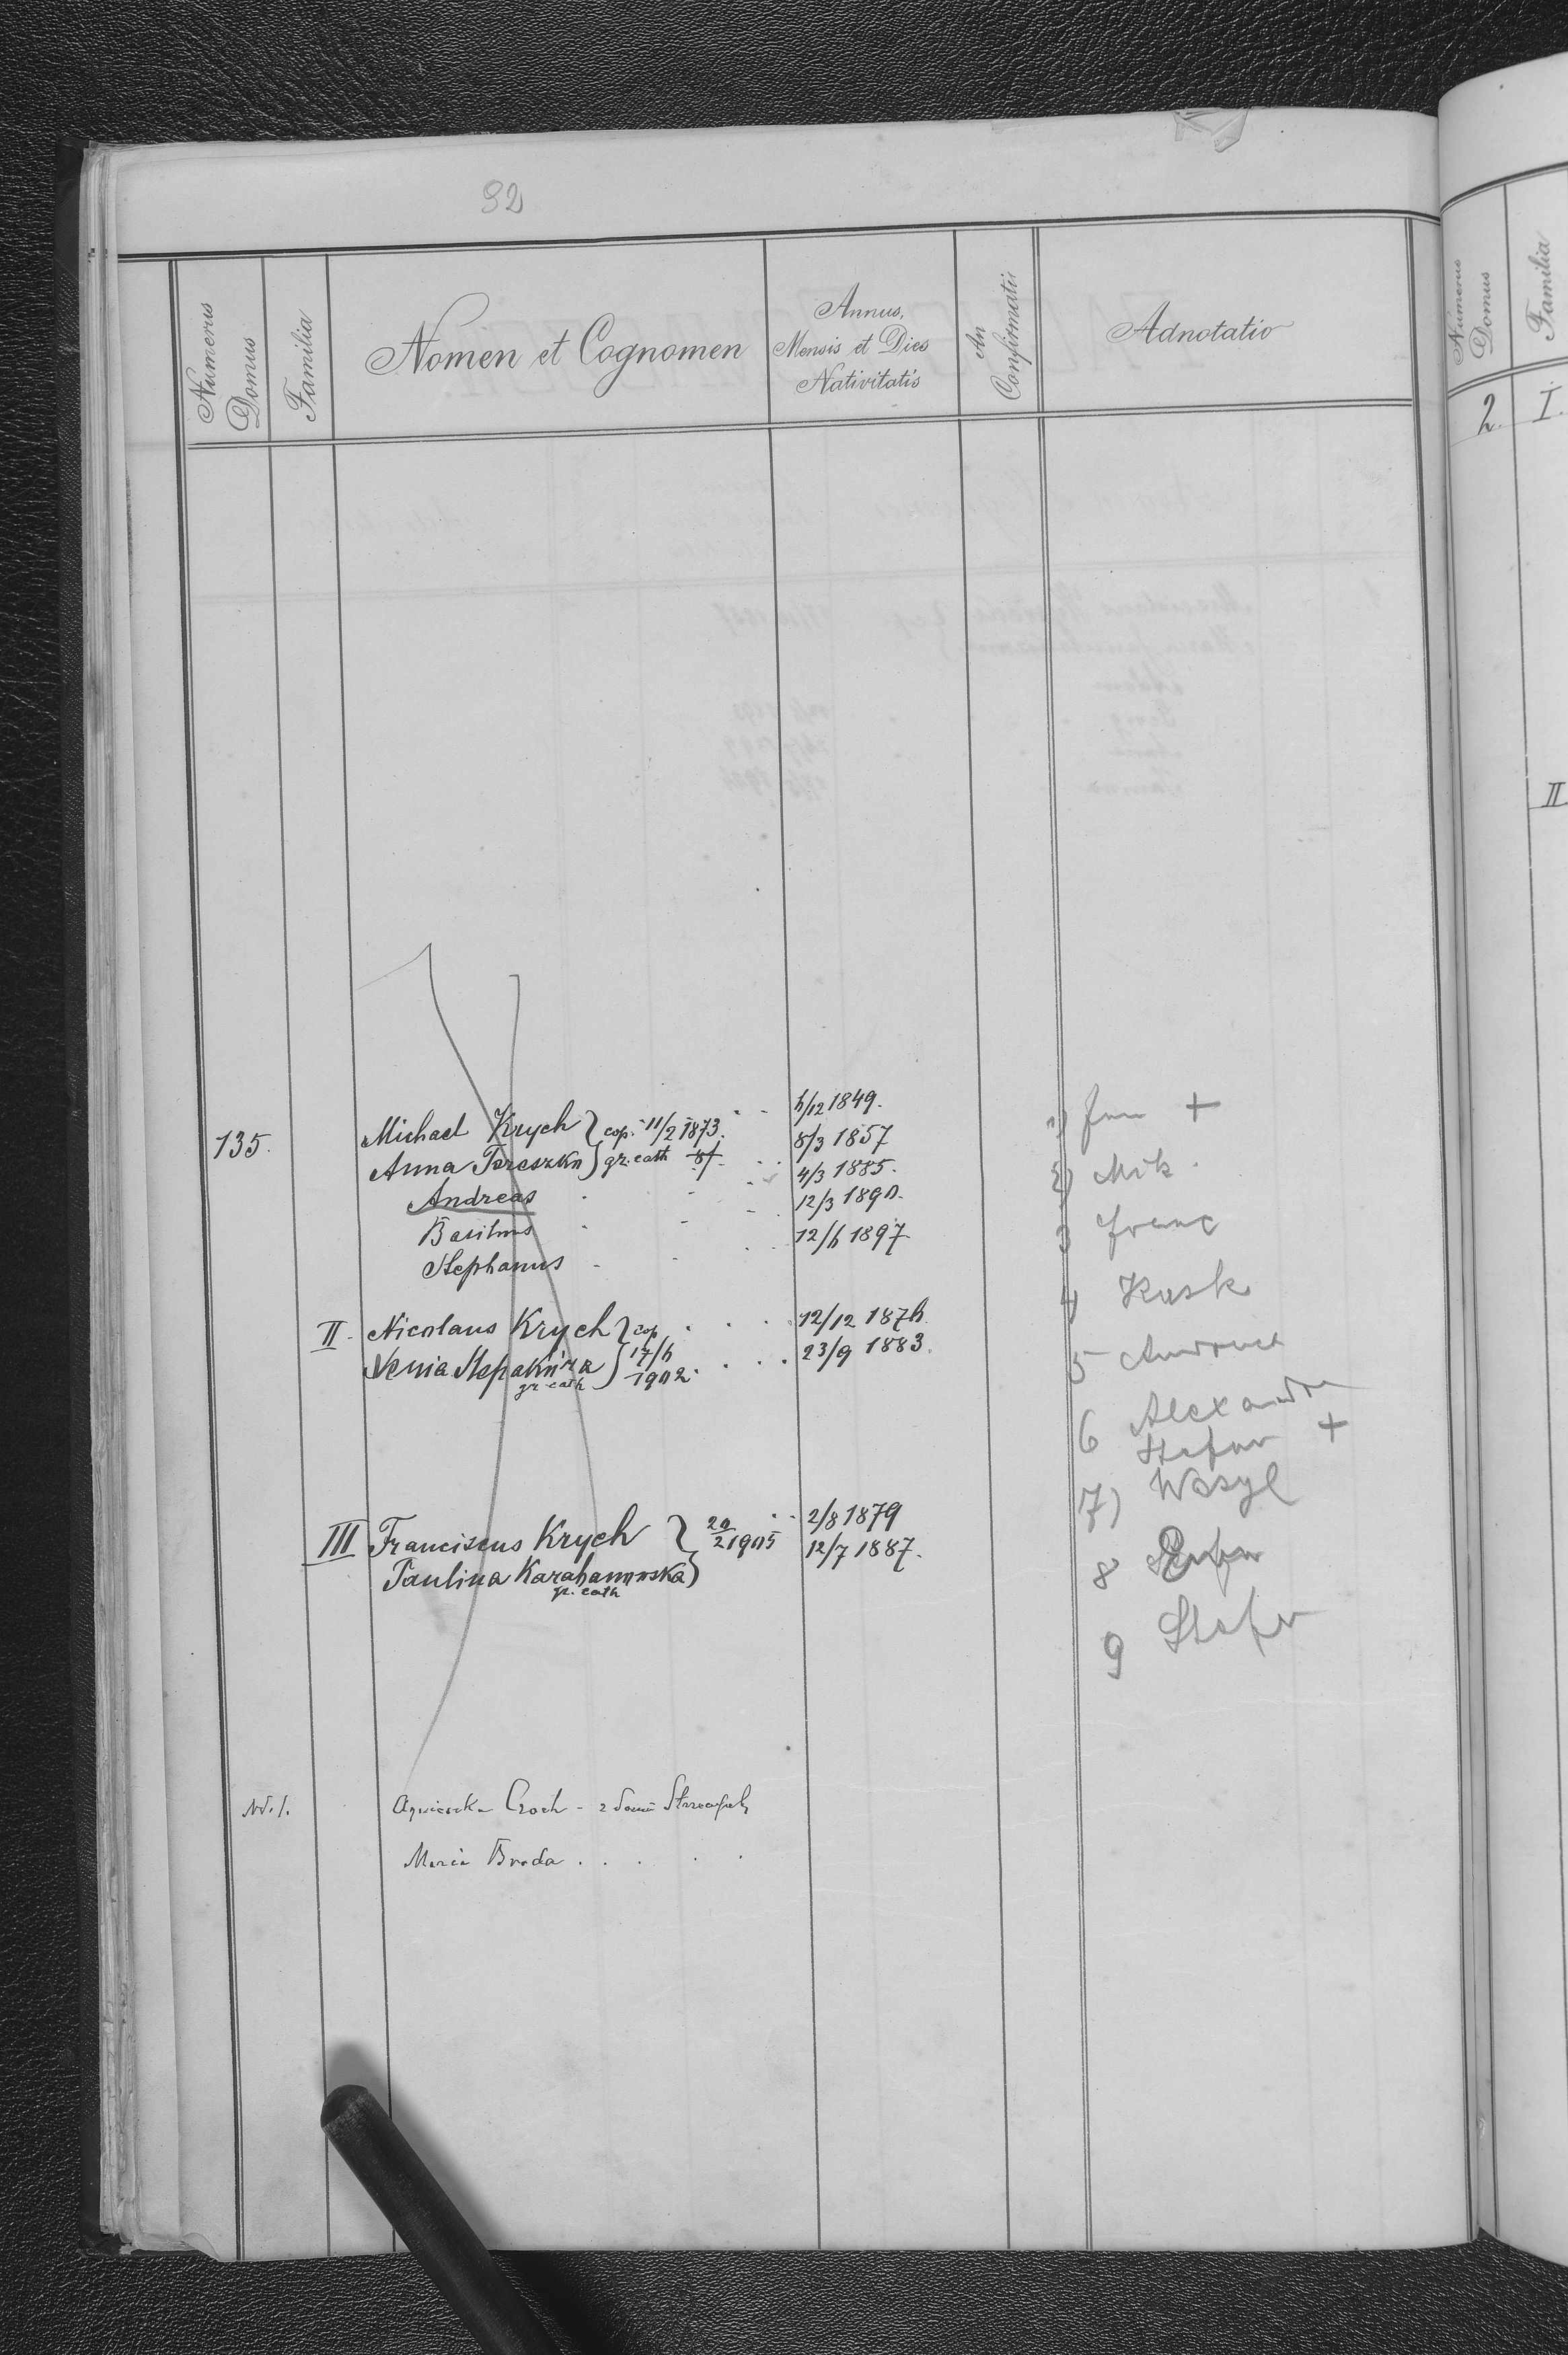 82
Numerus Domus
Familia
Nomen et Cognomen
Annus,
Mensis et Dies
Nativitatis
An Confirmatii
Adnotatio
135. Michael Krych } cop. 11/2 1873. h/12 1849.
Anna Tereszko } gr. cath 8/3 1857
Andreas 4/3 1885.
Basilius 12/3 1890.
Stephanus 12/h 1897
II. Nicolaus Krych } cop 12/12 187h
Xenia } 17/h 1902. 23/9 1883.
gr cath
III Franciscus Krych } 20/2 1905 2/8 1879
Paulina Karahanowska } 12/7 1887.
gr. cath
1) Jan +
2) Mik
3 Franc
4 Kask
5
6 Alexandra
Stefan +
7) Wasyl
8
9 Stefan
Nd. 1. Agnieszka Czoch - z domu
Maria Broda . . . . .
Numerus Domus
Familia
2. I.
II